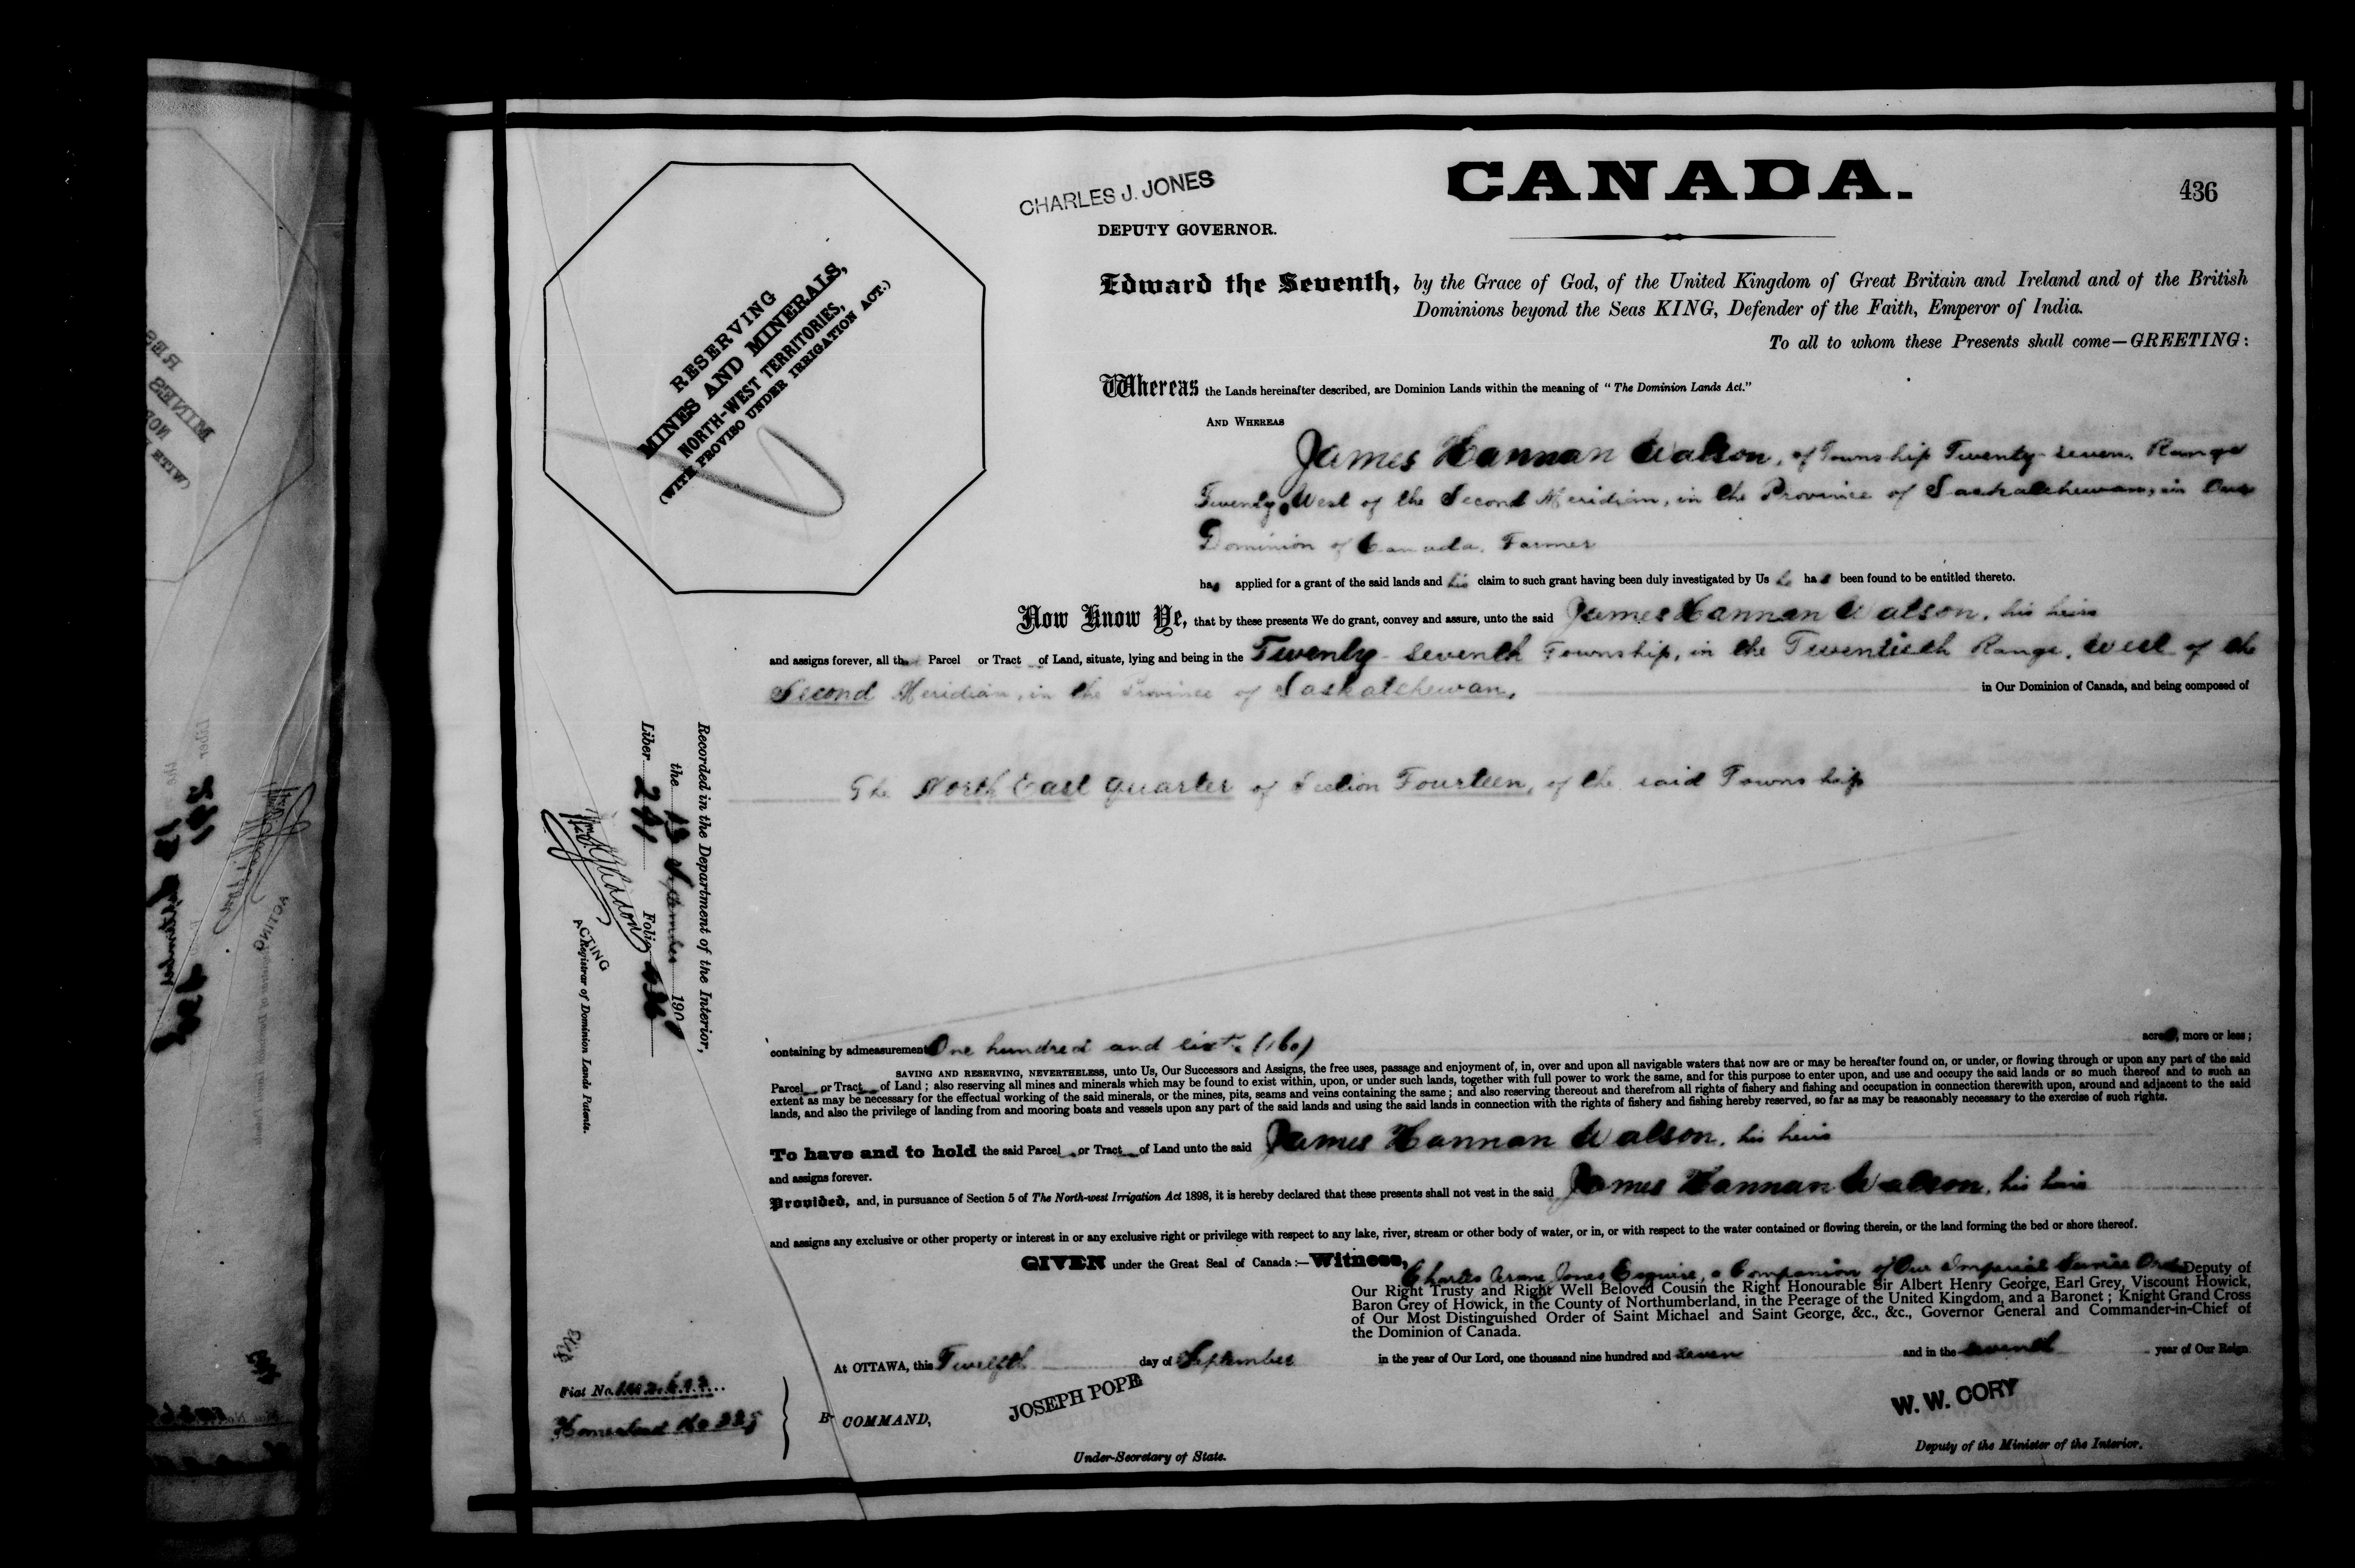 CHARLES J. JONES
DEPUTY GOVERNOR.
CANADA.
436
RESERVING
MINES AND MINERALS,
NORTH-WEST TERRITORIES,
(WITH PROVISO UNDER IRRIGATION ACT.)
Edward the Seventh, by the Grace of God, of the United Kingdom of Great Britain and Ireland and of the British
Dominions beyond the Seas KING, Defender of the Faith, Emperor of India.
To all to whom these Presents shall come—GREETING:
Whereas the Lands hereinafter described, are Dominion Lands within the meaning of "The Dominion Lands Act."
AND WHEREAS
James Hannan Watson, of Township Twenty-seven, Range
Twenty, West of the Second Meridian, in the Province of Saskatchewan, in Our
Dominion of Canada, Farmer
has applied for a grant of the said lands and his claim to such grant having been duly investigated by Us he has been found to be entitled thereto.
Now Know Ye, that by these presents We do grant, convey and assure, unto the said James Hannan Watson, his heirs
and assigns forever, all that Parcel or Tract of Land, situate, lying and being in the Twenty-seventh Township, in the Twentieth Range, West of the
Second Meridian, in the Province of Saskatchewan, in Our Dominion of Canada, and being composed of
The North East quarter of Section Fourteen, of the said Township
Recorded in the Department of the Interior,
the 13 September 1907
Liber 241 Folio 436
ACTING
Registrar of Dominion Lands Patents.
containing by admeasurement One hundred and sixty (160) acres, more or less;
SAVING AND RESERVING, NEVERTHELESS, unto Us, Our Successors and Assigns, the free uses, passage and enjoyment of, in, over and upon all navigable waters that now are or may be hereafter found on, or under, or flowing through or upon any part of the said
Parcel or Tract of Land; also reserving all mines and minerals which may be found to exist within, upon, or under such lands, together with full power to work the same, and for this purpose to enter upon, and use and occupy the said lands or so much thereof and to such an
extent as may be necessary for the effectual working of the said minerals, or the mines, pits, seams and veins containing the same; and also reserving thereout and therefrom all rights of fishery and fishing and occupation in connection therewith upon, around and adjacent to the said
lands, and also the privilege of landing from and mooring boats and vessels upon any part of the said lands and using the said lands in connection with the rights of fishery and fishing hereby reserved, so far as may be reasonably necessary to the exercise of such rights.
To have and to hold the said Parcel or Tract of Land unto the said James Hannan Watson, his heirs
and assigns forever.
Provided, and, in pursuance of Section 5 of The North-west Irrigation Act 1898, it is hereby declared that these presents shall not vest in the said James Hannan Watson, his heirs
and assigns any exclusive or other property or interest in or any exclusive right or privilege with respect to any lake, river, stream or other body of water, or in, or with respect to the water contained or flowing therein, or the land forming the bed or shore thereof.
GIVEN under the Great Seal of Canada:—Witness,
Charles Jones Esquire, a Companion of Our Imperial Service Order Deputy of
Our Right Trusty and Right Well Beloved Cousin the Right Honourable Sir Albert Henry George, Earl Grey, Viscount Howick,
Baron Grey of Howick, in the County of Northumberland, in the Peerage of the United Kingdom, and a Baronet; Knight Grand Cross
of Our Most Distinguished Order of Saint Michael and Saint George, &c., &c., Governor General and Commander-in-Chief of
the Dominion of Canada.
At OTTAWA, this Twelfth day of September in the year of Our Lord, one thousand nine hundred and seven and in the seventh year of Our Reign
Fiat No.
Homestead No
By COMMAND,
JOSEPH POPE
Under-Secretary of State.
W. W. CORY
Deputy of the Minister of the Interior.